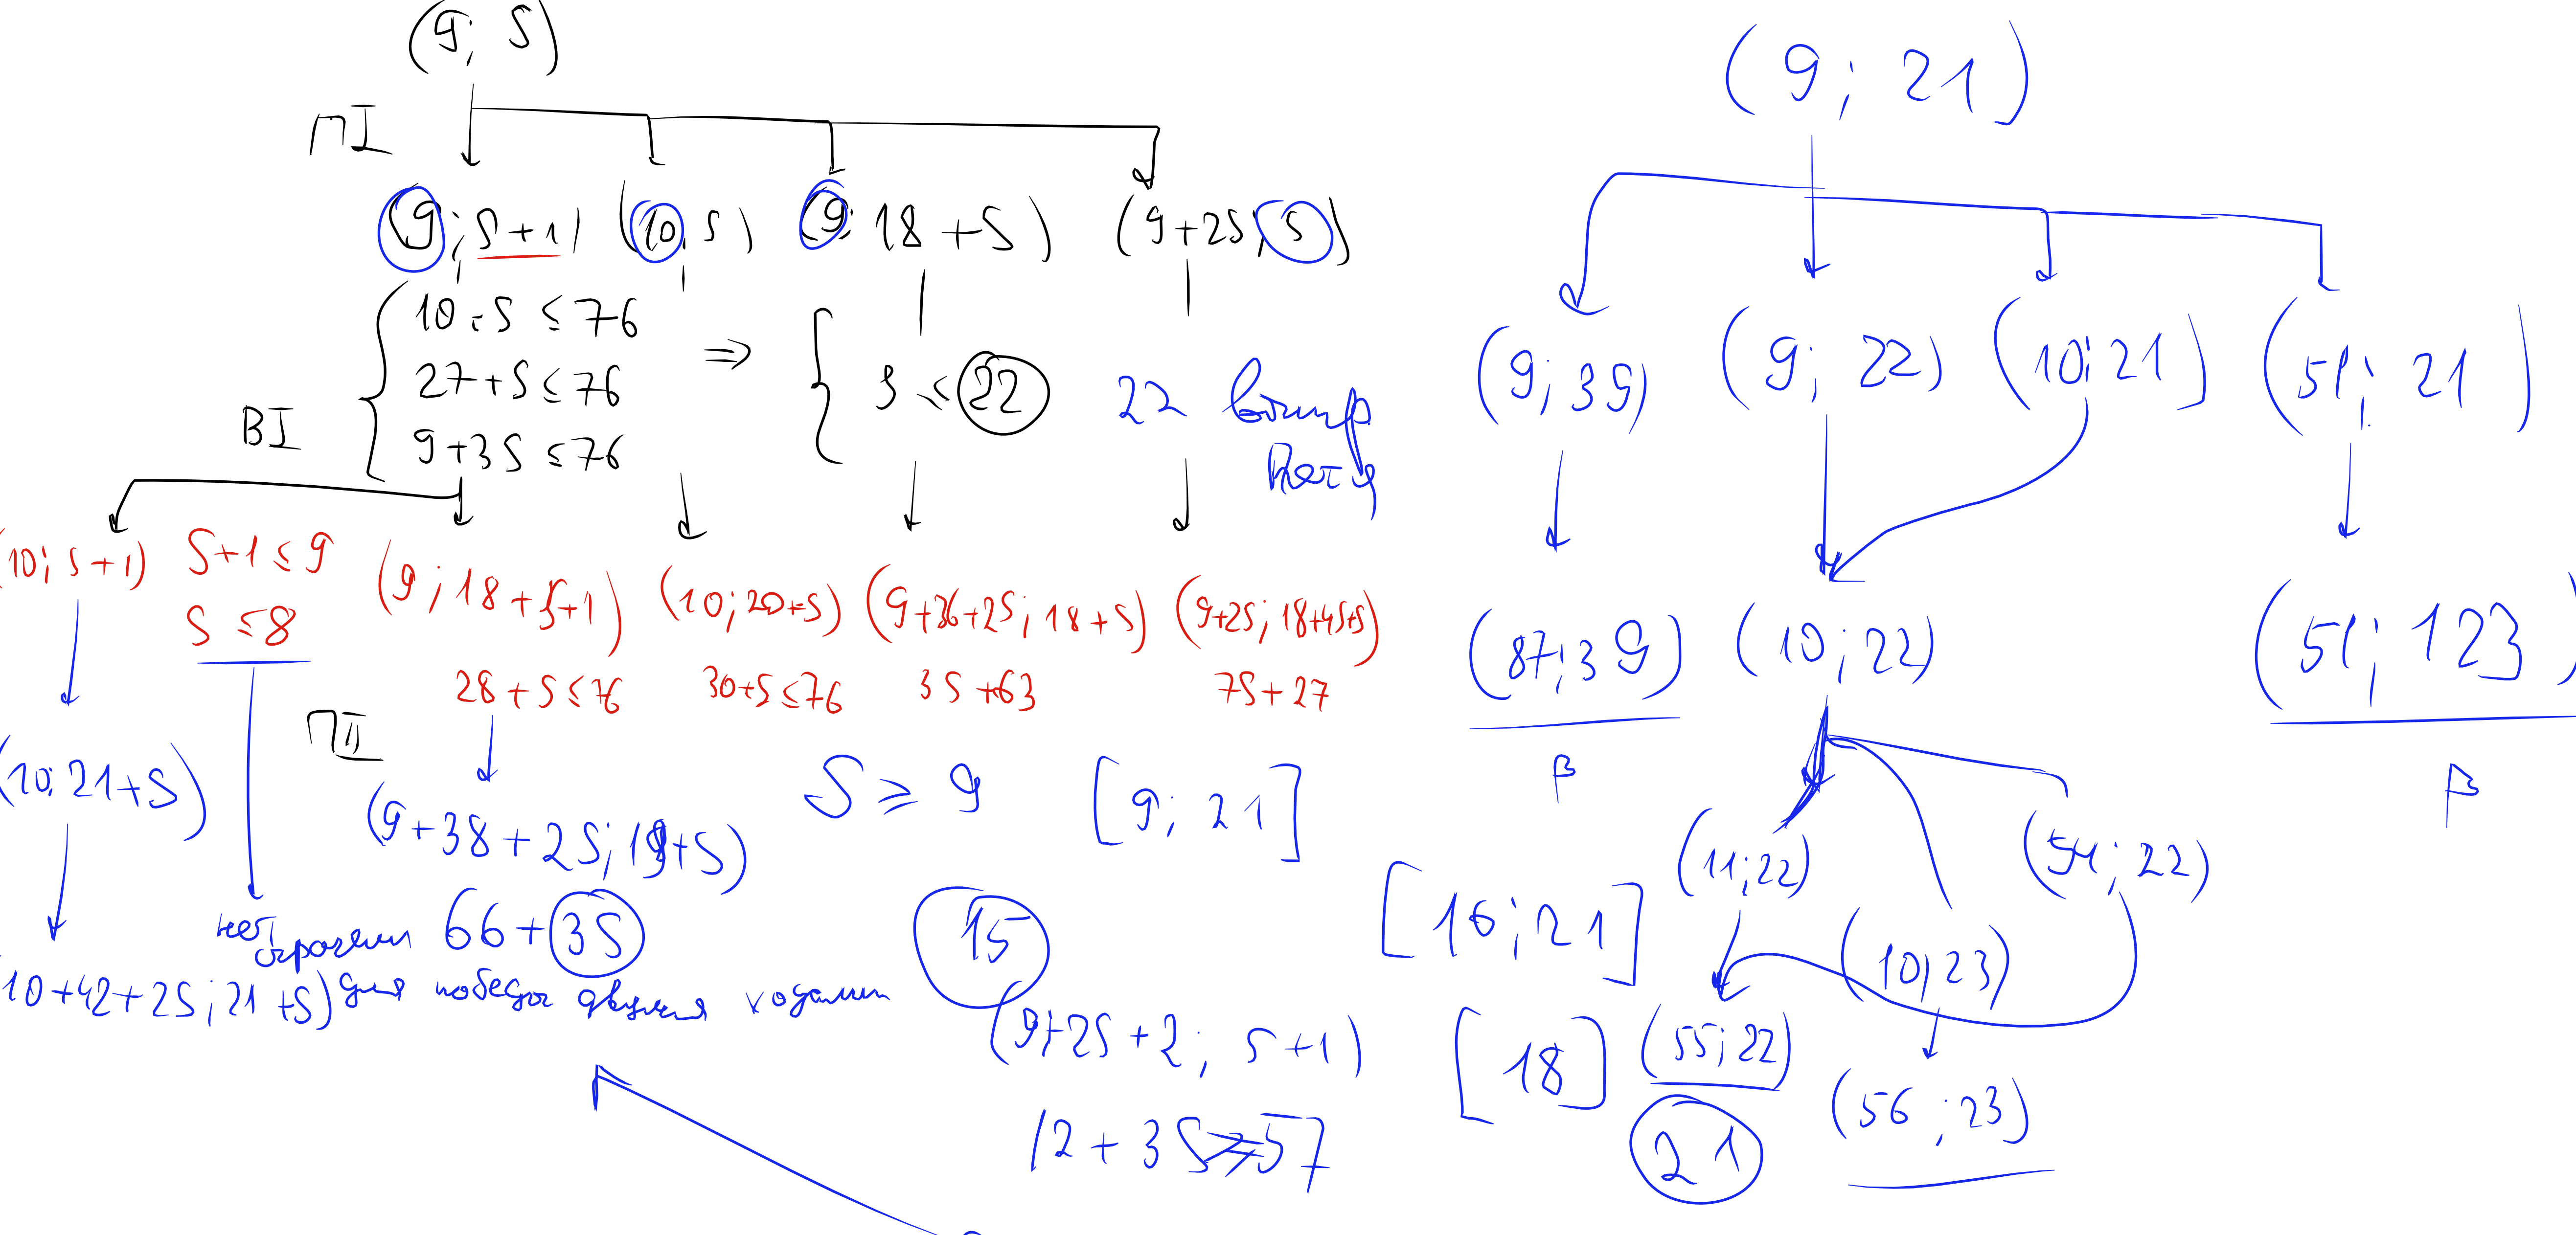 (9; S)
ПI
(9; S+1) (10; S) (9; 18+S) (9+2S; S)
10+S ≤ 76
27+S ≤ 76
9+3S ≤ 76
⇒
S ≤ 22
22
ВI
(10; S+1)
S+1 ≤ 9
S ≤ 8
(9; 18+S+1) (10; 20+S) (9+36+2S; 18+S) (9+2S; 18+4S+S)
28+S ≤ 76 30+S ≤ 76 3S+63 7S+27
ПII
(10; 21+S)
(9+38+2S; 19+S)
S ≥ 9 [9; 21]
нет
66+3S
(10+42+2S; 21+S) для победы двумя ходами
15
(9+2S+2; S+1)
12+3S ≥ 57
(9; 21)
(9; 39) (9; 22) (10; 21) (51; 21)
(87; 39) (10; 22) (51; 123)
β β
(11; 22) (54; 22)
[16; 21]
(10; 23)
[18] (55; 22)
(56; 23)
21